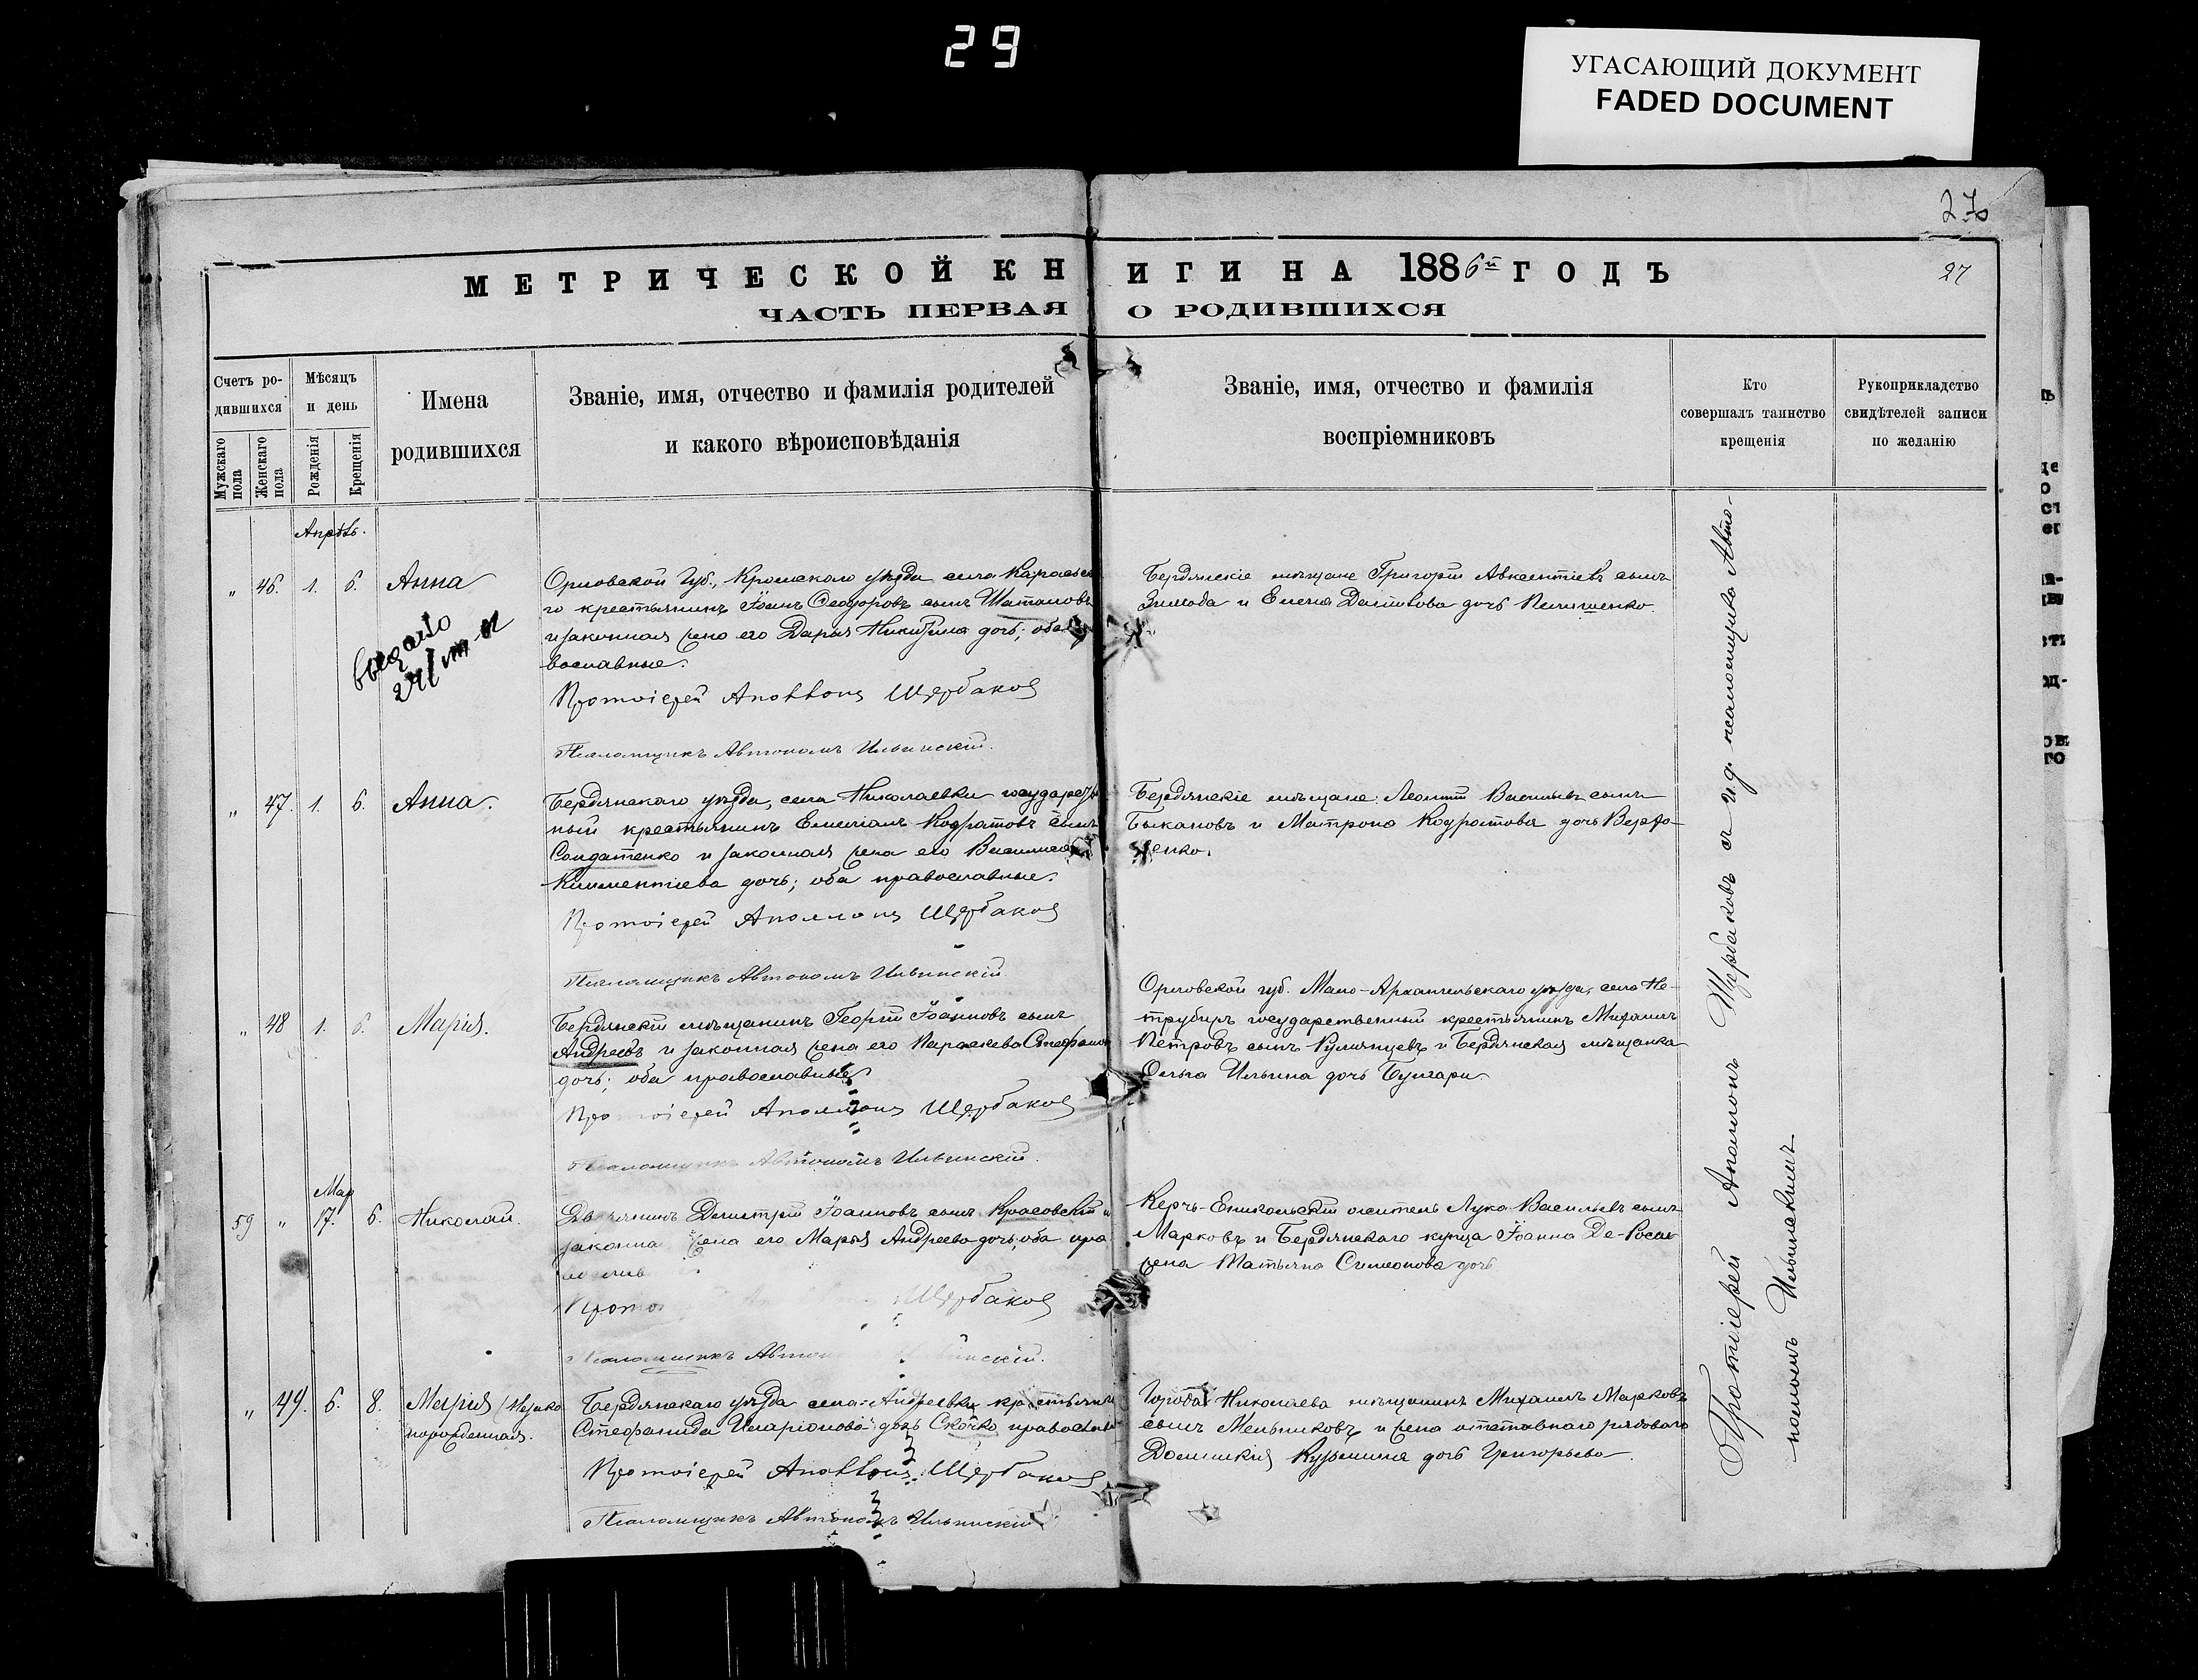 29
УГАСАЮЩИЙ ДОКУМЕНТ
FADED DOCUMENT
270
27
МЕТРИЧЕСКОЙ КНИГИ НА 1886й ГОДЪ
ЧАСТЬ ПЕРВАЯ О РОДИВШИХСЯ
Счетъ родившихся
Мужскаго пола
Женскаго пола
Мѣсяцъ и день
Рожденія
Крещенія
Имена родившихся
Званіе, имя, отчество и фамилія родителей
и какого вѣроисповѣданія
Званіе, имя, отчество и фамилія
воспріемниковъ
Кто
совершалъ таинство
крещенія
Рукоприкладство
свидѣтелей записи
по желанію
Апрѣль.
" 46. 1. 6. Анна
выдано
Орловской Губ., Кромскаго уѣзда села
го крестьянинъ Іоаннъ Ѳеодоровъ сынъ Шаталовъ
и законная жена его Дарья Никитина дочь; оба
вославные.
Протоіерей Аполлонъ Щербаковъ
Псаломщикъ Автономъ Ильинскій.
Бердянскіе мѣщане Григорій Авксентіевъ сынъ
Зимода и Елена дочь
" 47. 1. 6. Анна.
Бердянскаго уѣзда, села Николаевки государствен
ный крестьянинъ Емеліанъ Кодратовъ сынъ
Солдатенко и законная жена его Василиса
Климентіева дочь; оба православные.
Протоіерей Аполлонъ Щербаковъ
Псаломщикъ Автономъ Ильинскій
Бердянскіе мѣщане: Леонтій Васильевъ сынъ
Быкановъ и Матрона Кодратова дочь
" 48 1. 6. Марія.
Бердянскій мѣщанинъ Георгій Іоанновъ сынъ
Андреевъ и законная жена его Параскева Стефанов
дочь; оба православные.
Протоіерей Аполлонъ Щербаковъ
Псаломщикъ Автономъ Ильинскій.
Орловской губ. Мало-Архангельскаго уѣзда, села
государственный крестьянинъ Михаилъ
Петровъ сынъ Румянцевъ и Бердянская мѣщанка
Ольга Ильина дочь Булгари.
Мар
59 " 17. 6. Николай.
Дворянинъ Димитрій Іоанновъ сынъ Красовскій и
законна жена его Марья Андреева дочь, оба пра
Прото Щербаковъ
Псаломщикъ Автоно инскій.
Керчь-Еникольскій житель Лука Васильевъ сынъ
Марковъ и Бердянскаго купца Іоанна Де-Росси
жена Татьяна Симеонова дочь
" 49. 6. 8. Марія (незако
норожденная.
Бердянскаго уѣзда села Андреевки крестьянка
Стефанида Иларіонова дочь Скочко православная
Протоіерей Аполлонъ Щербаковъ
Псаломщикъ Автономъ Ильинскій
Города Николаева мѣщанинъ Михаилъ Марковъ
сынъ Мельниковъ и жена отставнаго рядоваго
Домникія Кузьмина дочь Григорьева.
Протіерей Аполлонъ Щербаковъ съ и. д. псаломщика Авто-
номомъ Ильинскимъ.